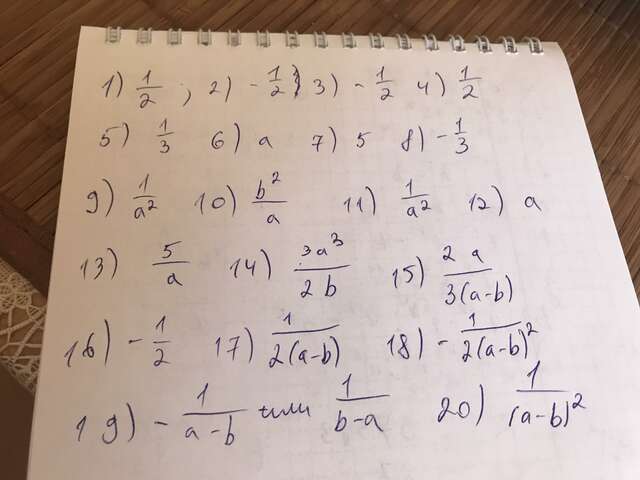 1) 1/2 ; 2) - 1/2; 3) - 1/2 4) 1/2
5) 1/3 6) a 7) 5 8) - 1/3
9) 1/a² 10) b²/a 11) 1/a² 12) a
13) 5/a 14) 3a³/2b 15) 2a/3(a-b)
16) - 1/2 17) 1/2(a-b) 18) - 1/2(a-b)²
19) - 1/a-b или 1/b-a 20) 1/(a-b)²